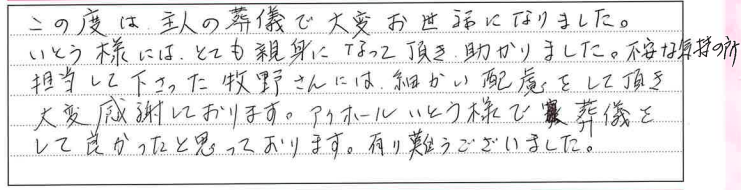 この度は、主人の葬儀で大変お世話になりました。
いとう様には、とても親身になって頂き、助かりました。不安な気持の所
担当して下さった牧野さんには、細かい配慮をして頂き
大変感謝しております。アイホールいとう様で葬儀を
して良かったと思っております。有り難うございました。